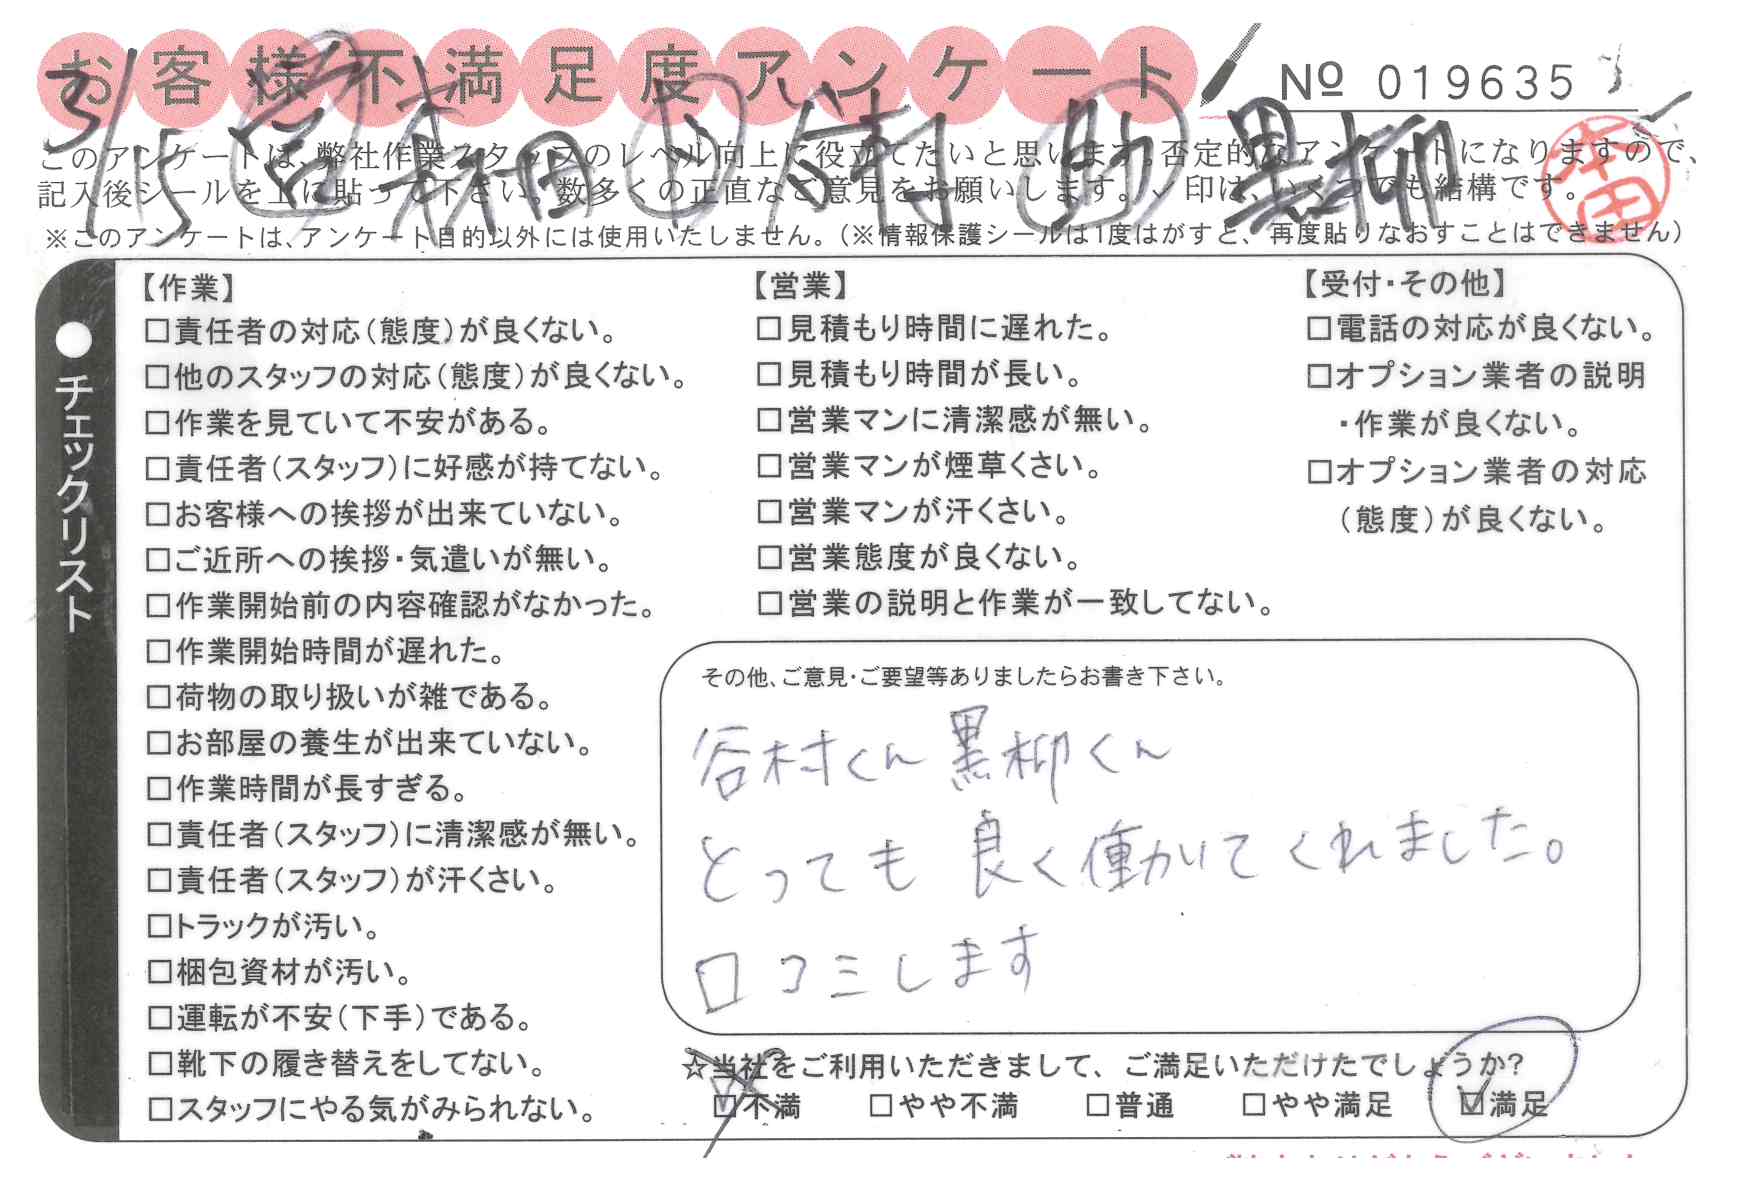 お客様不満足度アンケート
№ 019635
3/15 営 森田 谷村 助 黒柳
本田
このアンケートは、弊社作業スタッフのレベル向上に役立てたいと思います。否定的なアンケートになりますので、
記入後シールを上に貼って下さい。数多くの正直なご意見をお願いします。✓印は、いくつでも結構です。
※このアンケートは、アンケート目的以外には使用いたしません。(※情報保護シールは1度はがすと、再度貼りなおすことはできません)
●チェックリスト
【作業】
□責任者の対応(態度)が良くない。
□他のスタッフの対応(態度)が良くない。
□作業を見ていて不安がある。
□責任者(スタッフ)に好感が持てない。
□お客様への挨拶が出来ていない。
□ご近所への挨拶・気遣いが無い。
□作業開始前の内容確認がなかった。
□作業開始時間が遅れた。
□荷物の取り扱いが雑である。
□お部屋の養生が出来ていない。
□作業時間が長すぎる。
□責任者(スタッフ)に清潔感が無い。
□責任者(スタッフ)が汗くさい。
□トラックが汚い。
□梱包資材が汚い。
□運転が不安(下手)である。
□靴下の履き替えをしてない。
□スタッフにやる気がみられない。
【営業】
□見積もり時間に遅れた。
□見積もり時間が長い。
□営業マンに清潔感が無い。
□営業マンが煙草くさい。
□営業マンが汗くさい。
□営業態度が良くない。
□営業の説明と作業が一致してない。
【受付・その他】
□電話の対応が良くない。
□オプション業者の説明
・作業が良くない。
□オプション業者の対応
(態度)が良くない。
その他、ご意見・ご要望等ありましたらお書き下さい。
谷村くん 黒柳くん
とっても 良く働いてくれました。
口コミします
☆当社をご利用いただきまして、ご満足いただけたでしょうか?
□不満 □やや不満 □普通 □やや満足 ☑満足